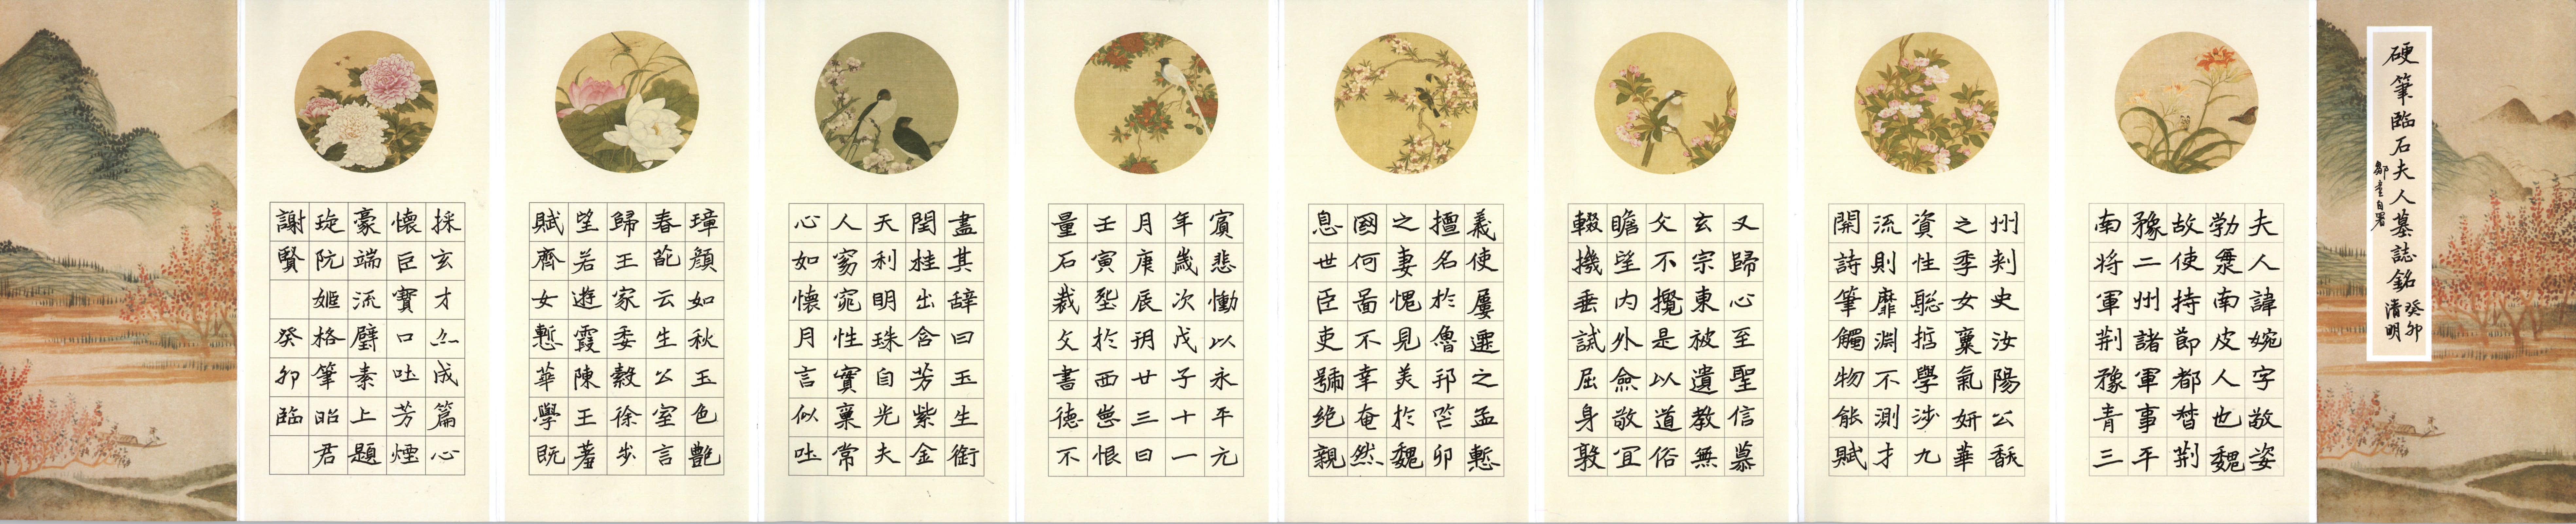 硬筆臨石夫人墓誌銘
癸卯
清明
鄒奎自署
夫人諱婉字敬姿
勃海南皮人也魏
故使持節都督荆
豫二州諸軍事平
南将軍荆豫青三
州刺史汝陽公馥
之季女稟氣妍華
資性聡哲學涉九
流則靡淵不測才
開詩筆觸物能賦
又歸心至聖信慕
玄宗東被遺教無
文不攬是以道俗
瞻望内外僉敬宜
輟機垂誡屈身敦
義使屢遷之孟慙
擅名於魯邦笞卯
之妻愧見美於魏
國何啚不幸奄然
息世臣吏號絶親
賓悲慟以永平元
年歲次戊子十一
月庚辰朔廿三日
壬寅堲於西崗恨
量石裁文書德不
盡其辞曰玉生銜
閏桂出含芳紫金
天利明珠自光夫
人窈窕性實稟常
心如懷月言似吐
璋顔如秋玉色艷
春葩云生公室言
歸王家委穀徐步
望若遊霞陳王羞
賦齊女慙華學既
採玄才亦成篇心
懷巨寶口吐芳煙
豪端流璧素上題
琁阮姬格筆昭君
謝賢
癸卯臨